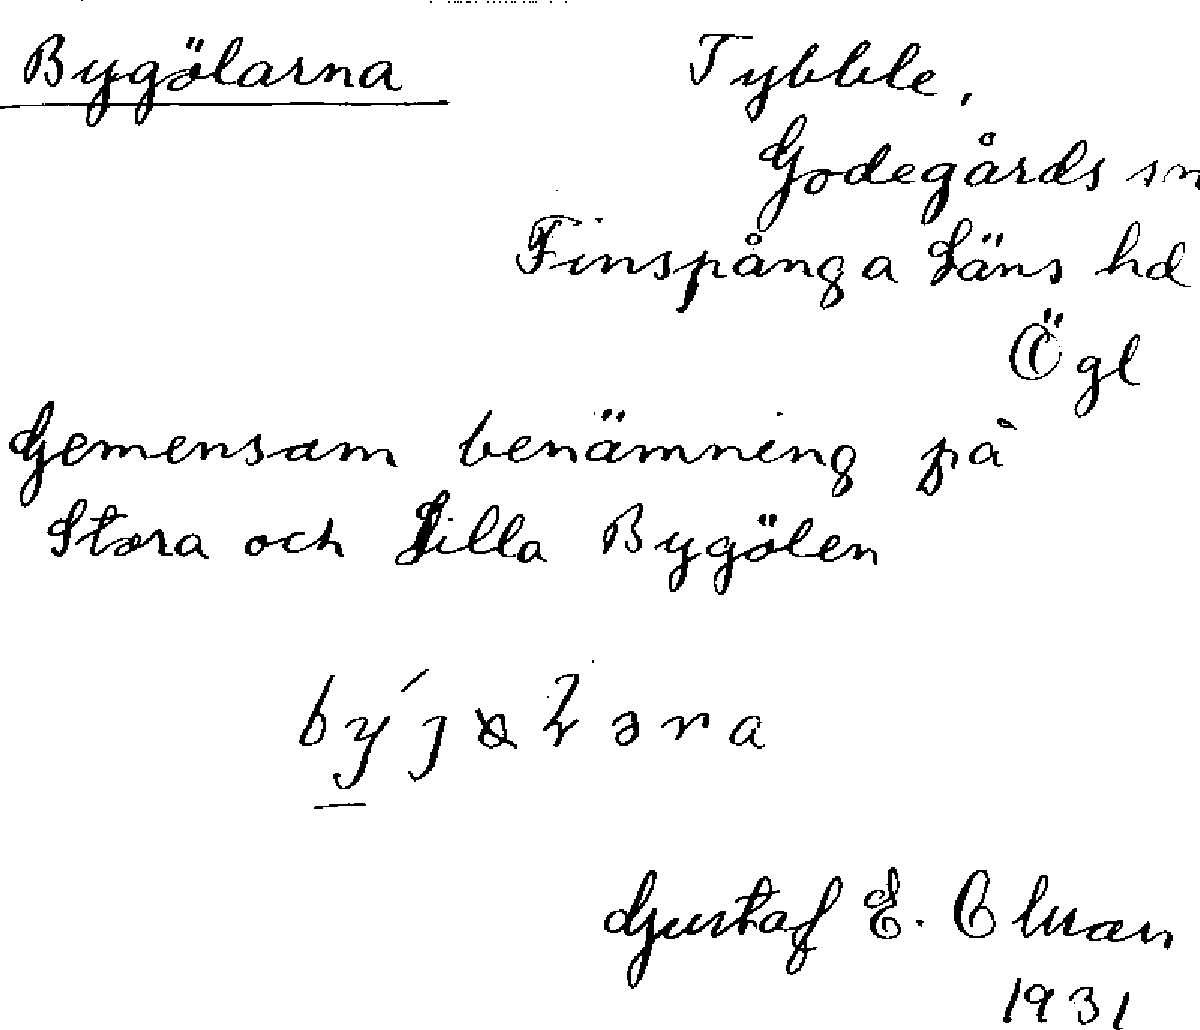 Bygölarna
Tybble,
Godegårds sn
Finspånga Läns hd
Ögl
Gemensam benämning på
Stora och Lilla Bygölen
Gustaf E.
1931